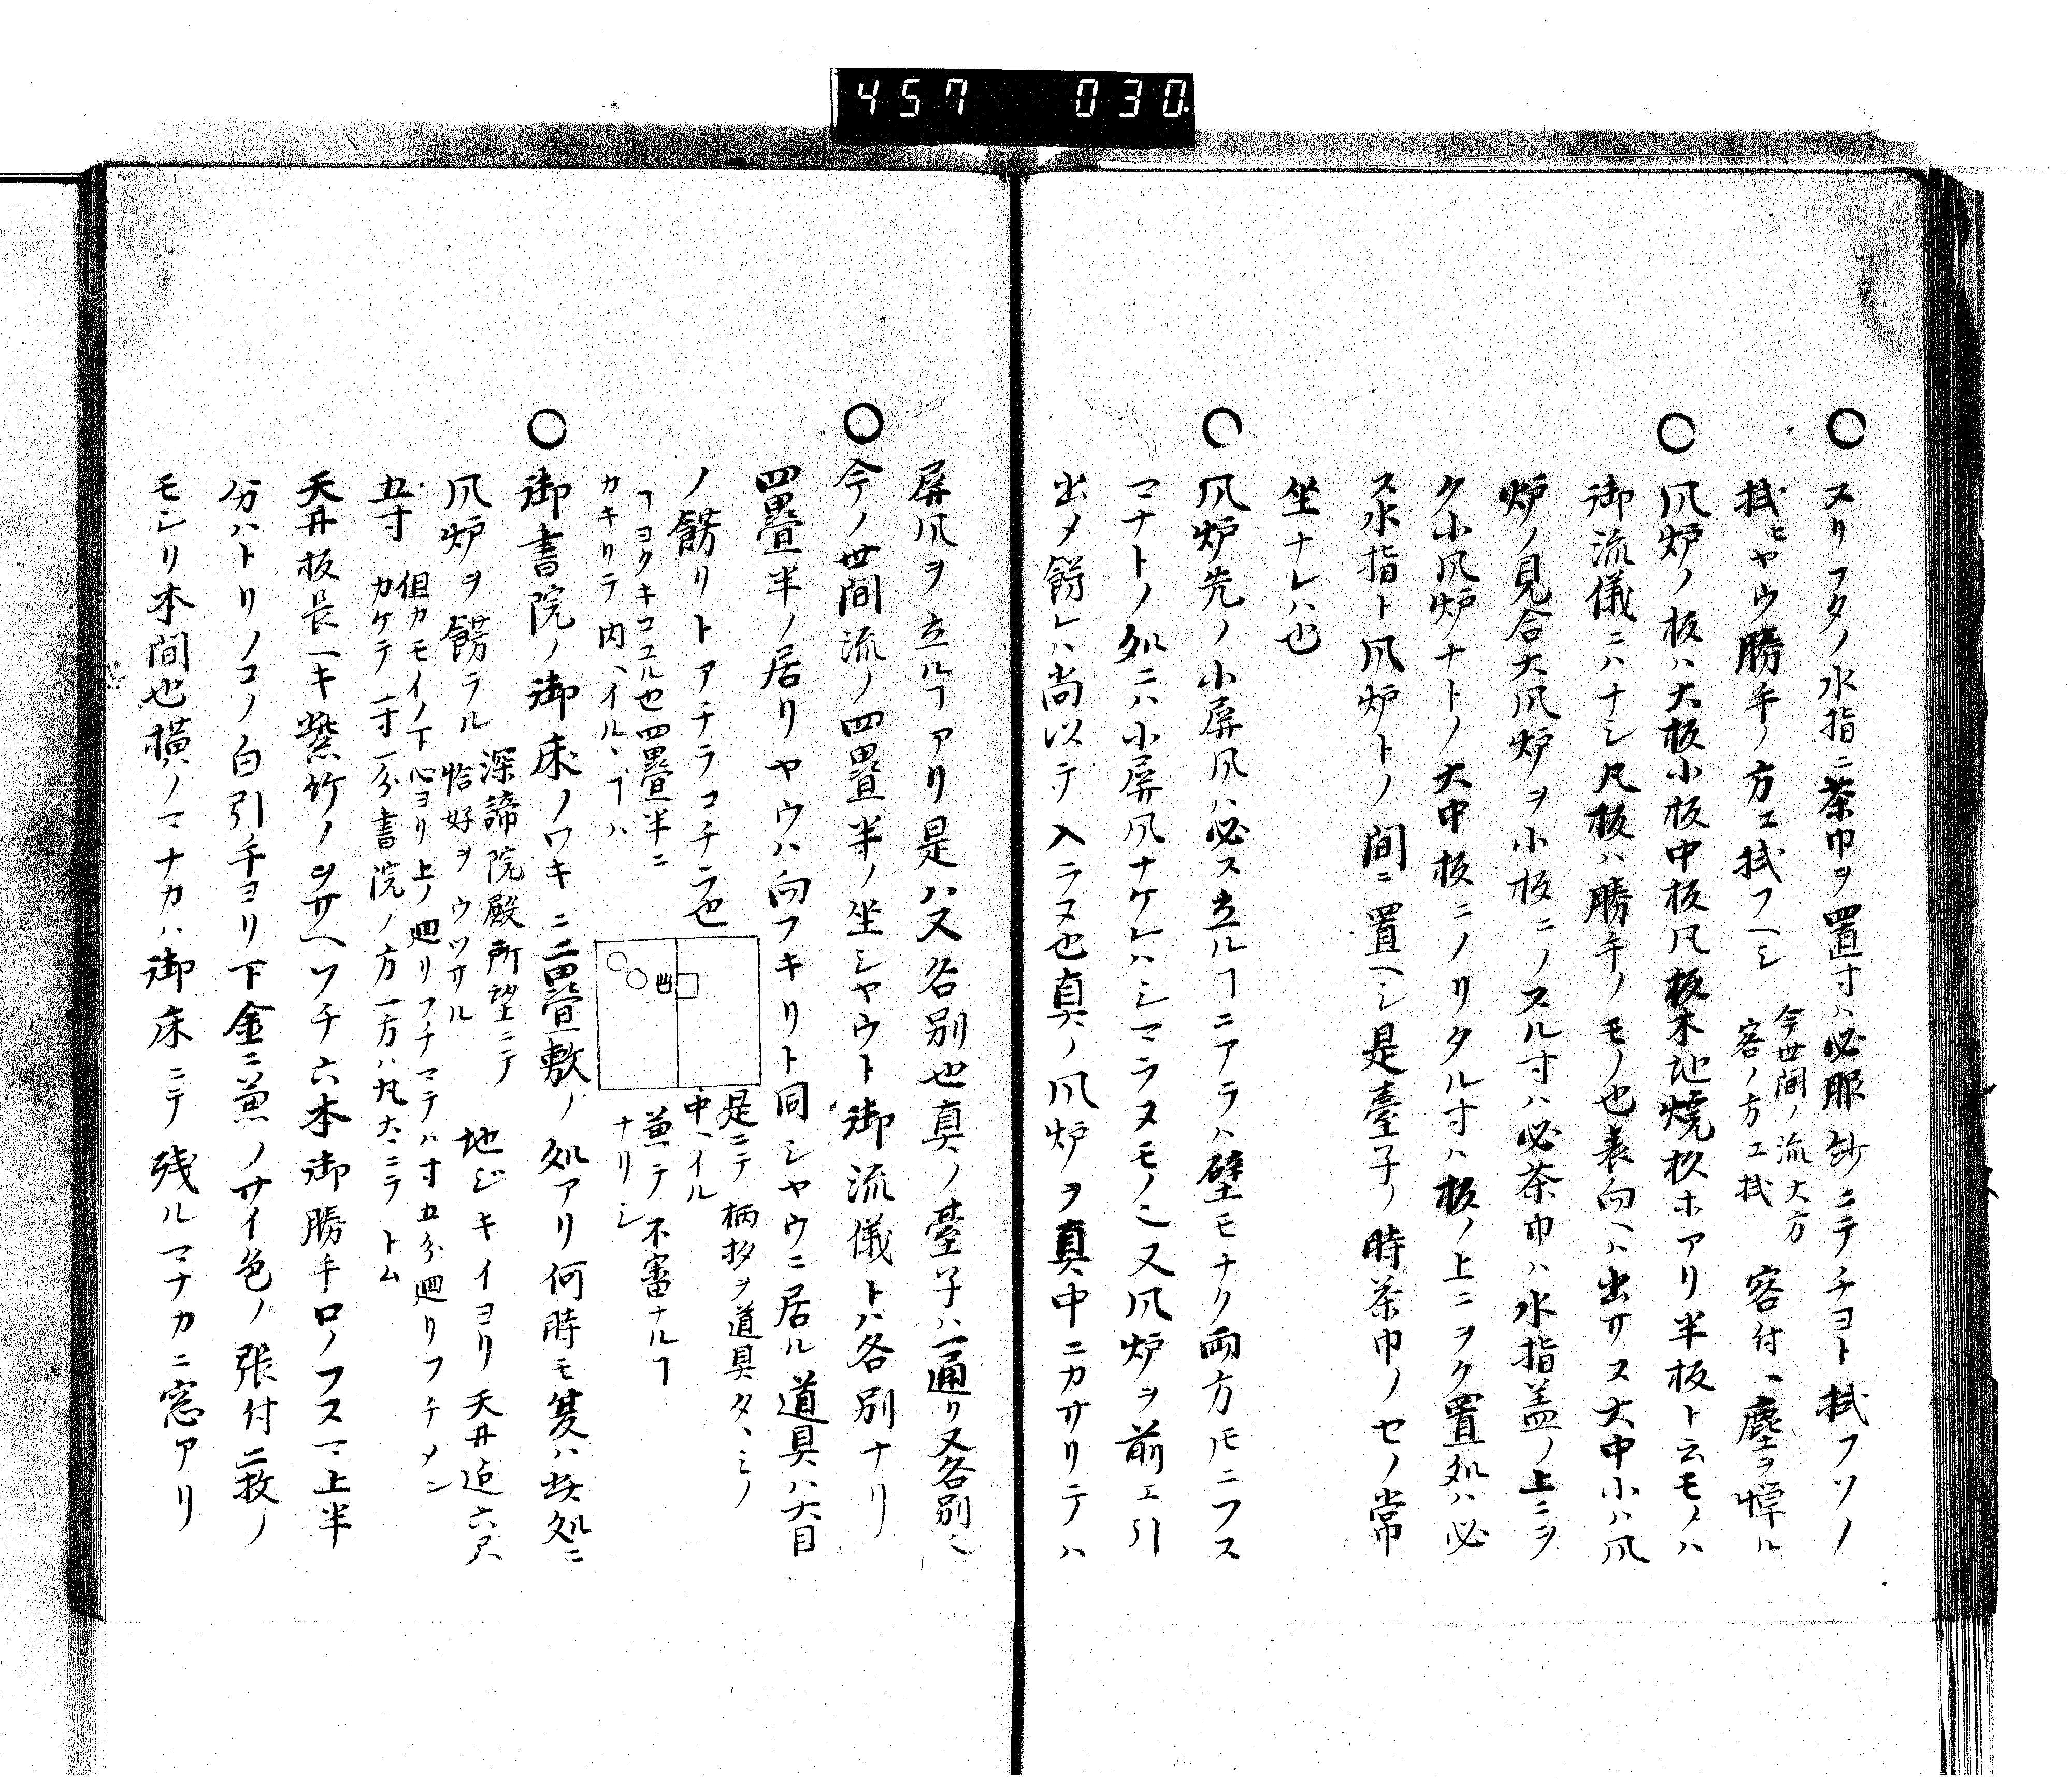 457 030
○ヌリフタノ水指ニ茶巾ヲ置寸ハ必服紗ニテチヨト拭フソノ
拭ヒヤウ勝手ノ方エ拭フヘシ
今世間ノ流大方
客ノ方エ拭
客付ヘ塵ヲ憚ル
○风炉ノ板ハ大板小板中板尺板木地焼杉ホアリ半板ト云モノハ
御流儀ニハナシ尺板ハ勝手ノモノ也表向ヘハ出サス大中小ハ风
炉ノ見合大风炉ヲ小板ニノスル寸ハ必茶巾ハ水指盖ノ上ニヲ
ク小风炉ナトノ大中板ニノリタル寸ハ板ノ上ニヲク置処ハ必
ス水指ト风炉トノ間ニ置ヘシ是臺子ノ時茶巾ノセノ常
坐ナレハ也
○风炉先ノ小屏风ハ必ス立ルヿニアラハ壁モナク両方トモニフス
マナトノ処ニハ小屏风ナケレハシマラヌモノ也又风炉ヲ前エ引
出メ餝レハ尚以テ入ラヌ也真ノ风炉ヲ真中ニカサリテハ
屏风ヲ立ルヿアリ是ハ又各別也真ノ臺子ハ一通リ又各別也
○今ノ世間流ノ四畳半ノ坐シヤウト御流儀トハ各別ナリ
四畳半ノ居リヤウハ向フキリト同シヤウニ居ル道具ハ大目
ノ餝リトアチラコチラ也
是ニテ柄杓ヲ道具タヽミノ
中ヘイル
ヿヨクキコユル也四畳半ニ
カキリテ内ヘイルヽヿハ
兼テ不審ナルヿ
ナリシ
○御書院ノ御床ノワキニ二畳敷ノ処アリ何時モ夏ハ此処ニ
风炉ヲ餝ラル
深諦院殿所望ニテ
恰好ヲウツサル
地シキイヨリ天井迠六尺
五寸
但カモイノ下心ヨリ上ノ廻リフチマテハ寸五分廻リフチメン
カケテ一寸一分書院ノ方一方ハ丸太ニテトム
天井板長一キ紫竹ノヲサヘフチ六本御勝手口ノフスマ上半
分ハトリノコノ白引手ヨリ下金ニ薫ノサイ色ノ張付二枚ノ
モシリ本間也横ノマナカハ御床ニテ残ルマナカニ窓アリ